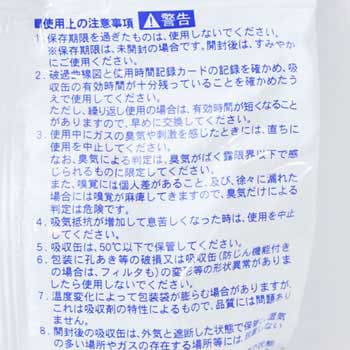 ■使用上の注意事項 警告
1. 保存期限を過ぎたものは、使用しないでください。
保存期限は、未開封の場合です。開封後は、すみやか
にご使用ください。
2. 破過曲線図と使用時間記録カードの記録を確かめ、吸
収缶の有効時間が十分残っていることを確かめたう
えで使用してください。
ただし、繰り返し使用の場合は、有効時間が短くなること
がありますので、早めに交換してください。
3. 使用中にガスの臭気や刺激を感じたときには、直ちに
使用を中止してください。
なお、臭気による判定は、臭気がばく露限界以下で感
じられるものに限定してください。
また、嗅覚には個人差があること、及び、徐々に漏れた
場合には嗅覚が麻痺してきますので、臭気だけによる
判定は危険です。
4. 吸気抵抗が増加して息苦しくなった時は、使用を中止
してください。
5. 吸収缶は、50℃以下で保管してください。
6. 包装に孔あき等の破損又は吸収缶(防じん機能付き
の場合は、フィルタも)の変形等の形状異常がありま
したら使用しないでください。
7. 温度変化によって包装袋が膨らむ場合がありますが、
これは吸収剤の特性によるもので、品質には問題あり
ません。
8. 開封後の吸収缶は、外気と遮断した状態で保管し、湿気
の多い場所やガスの存在する場所等には、放置しない